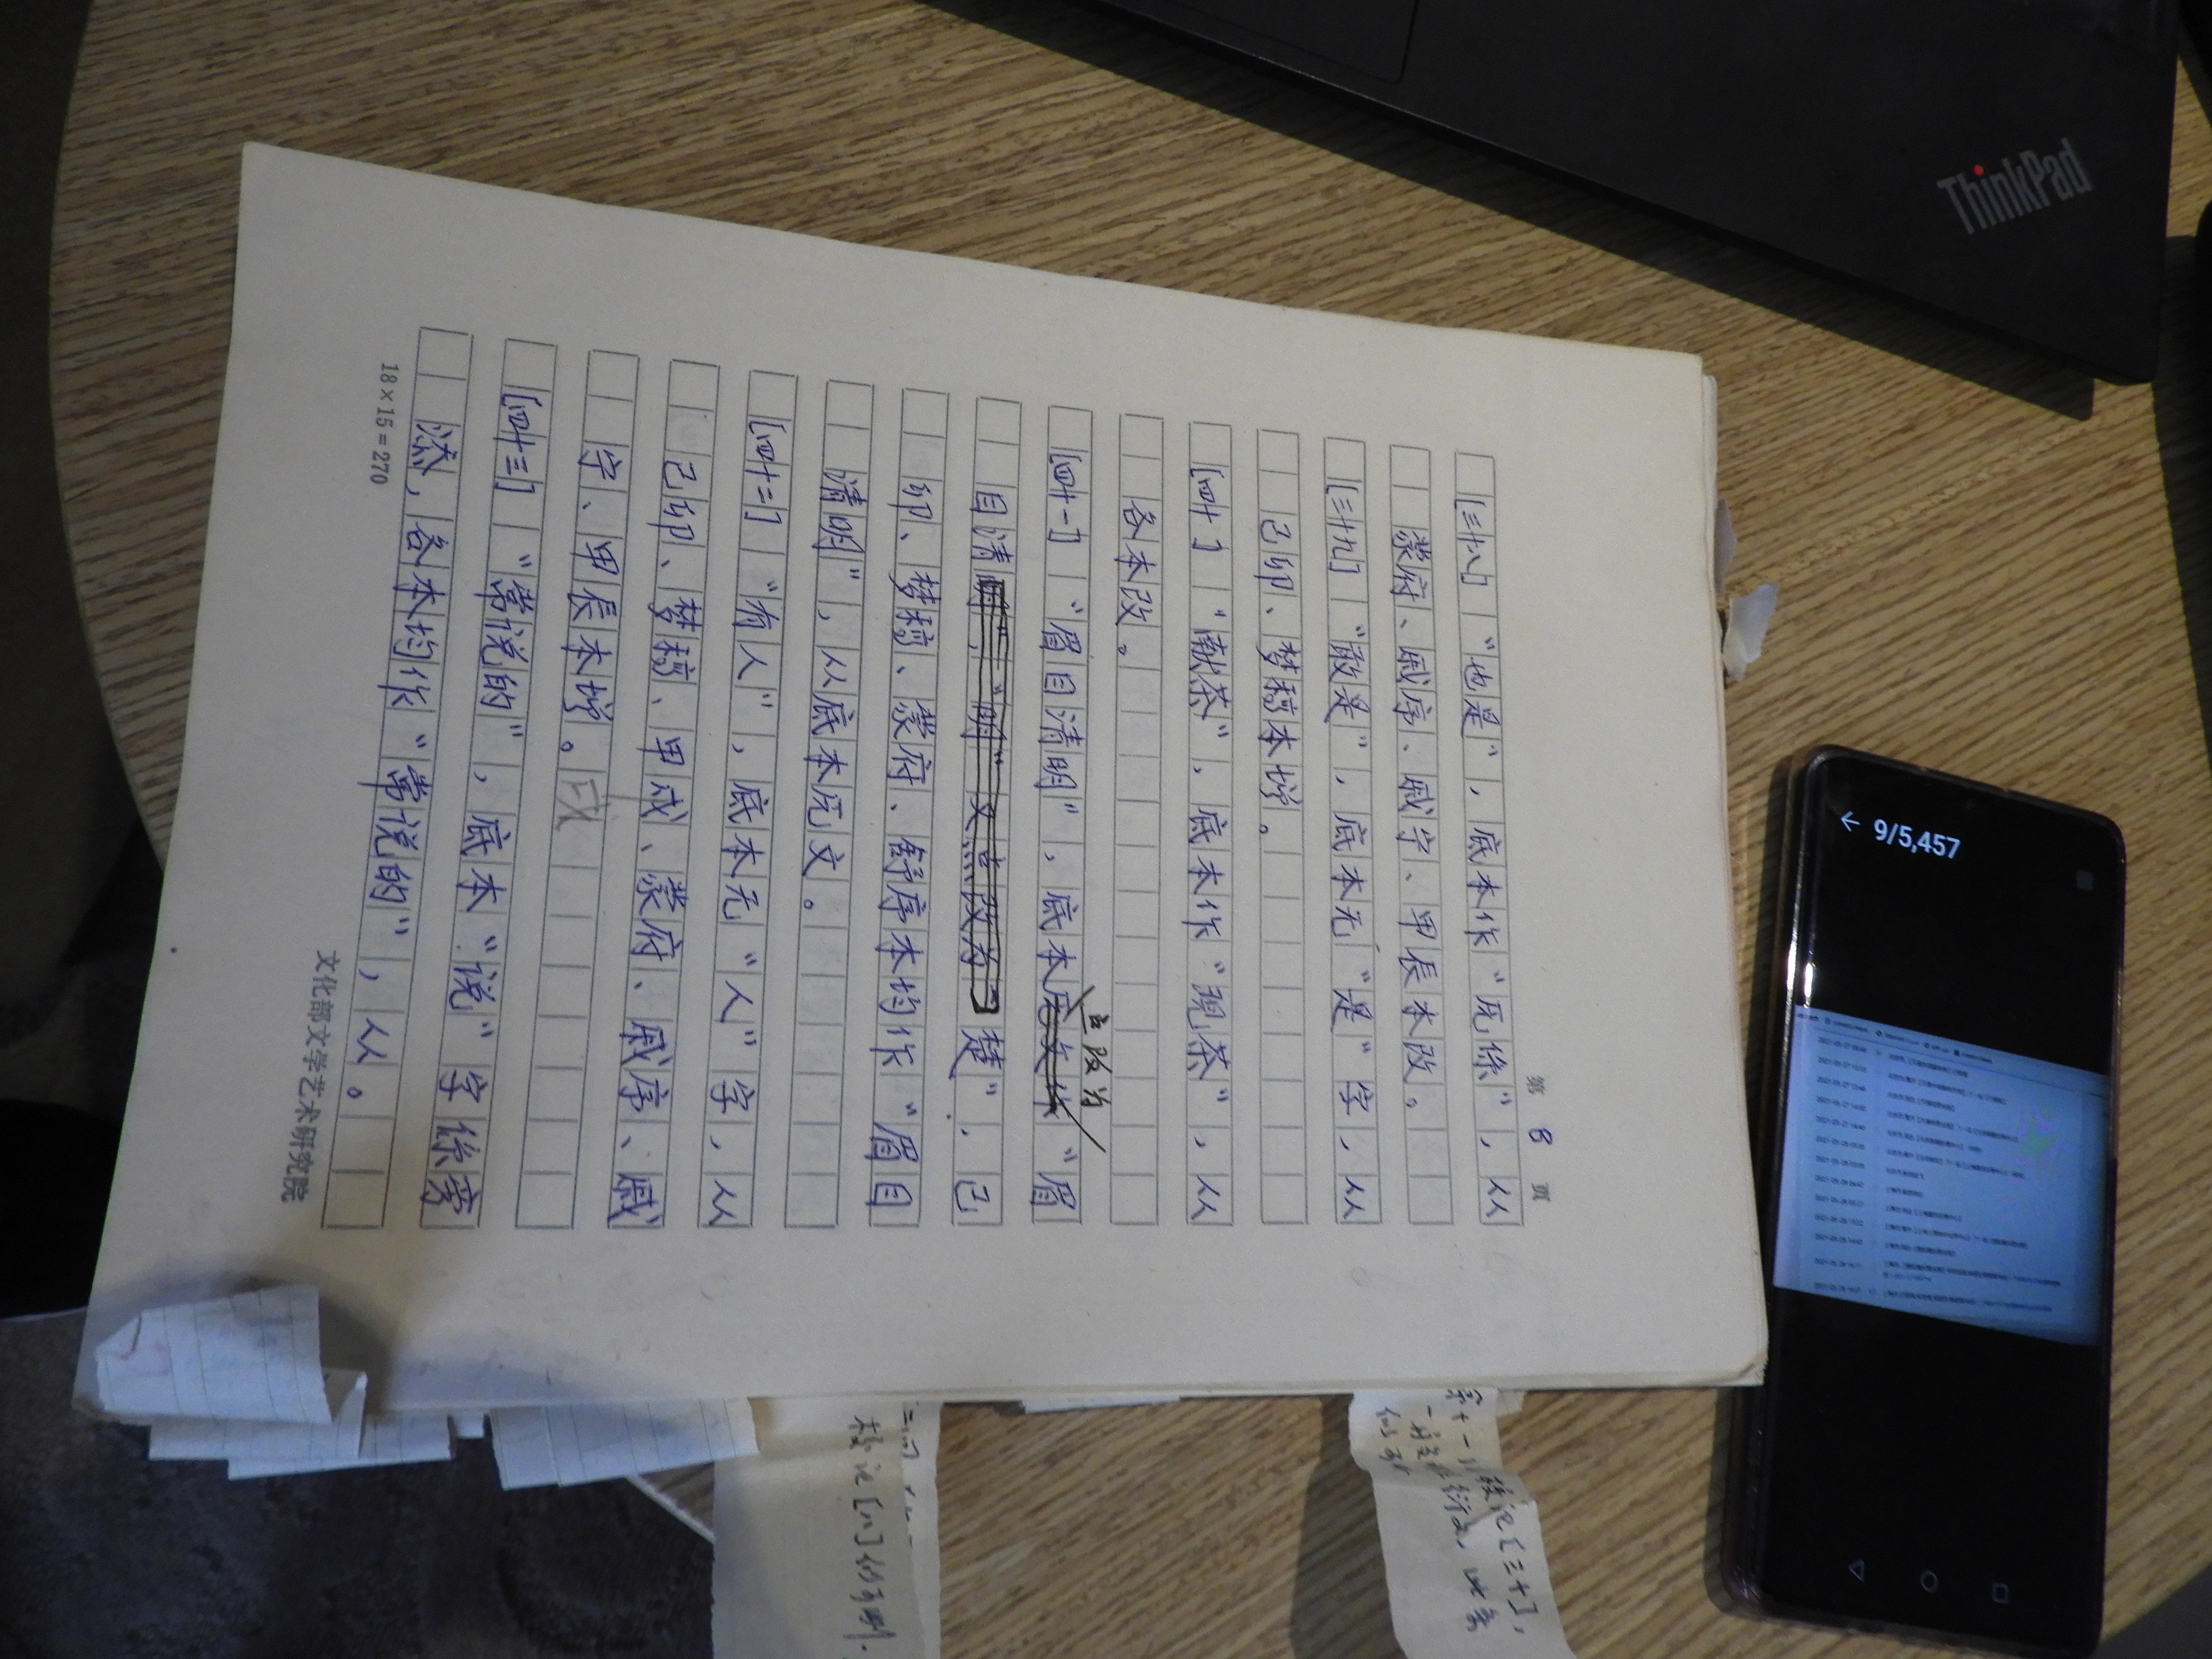 第 8 页
[三十八] “也是”，底本作“既係”，从
蒙府、戚序、戚宁、甲辰本改。
[三十九] “敢是”，底本无“是”字，从
己卯、梦稿本增。
[四十] “献茶”，底本作“现茶”，从
各本改。
[四十一] “眉目清明”，底本原文作“眉
点改为
目清明”，“明”又点改为“楚”。己
卯、梦稿、蒙府、舒序本均作“眉目
清明”，从底本原文。
[四十二] “有人”，底本无“人”字，从
己卯、梦稿、甲戌、蒙府、戚序、戚
宁、甲辰本增。
[四十三] “常说的”，底本“说”字係旁
添，各本均作“常说的”，从。
18×15=270
文化部文学艺术研究院
校记[八]仍删.
校记[三十],
ThinkPad
9/5,457